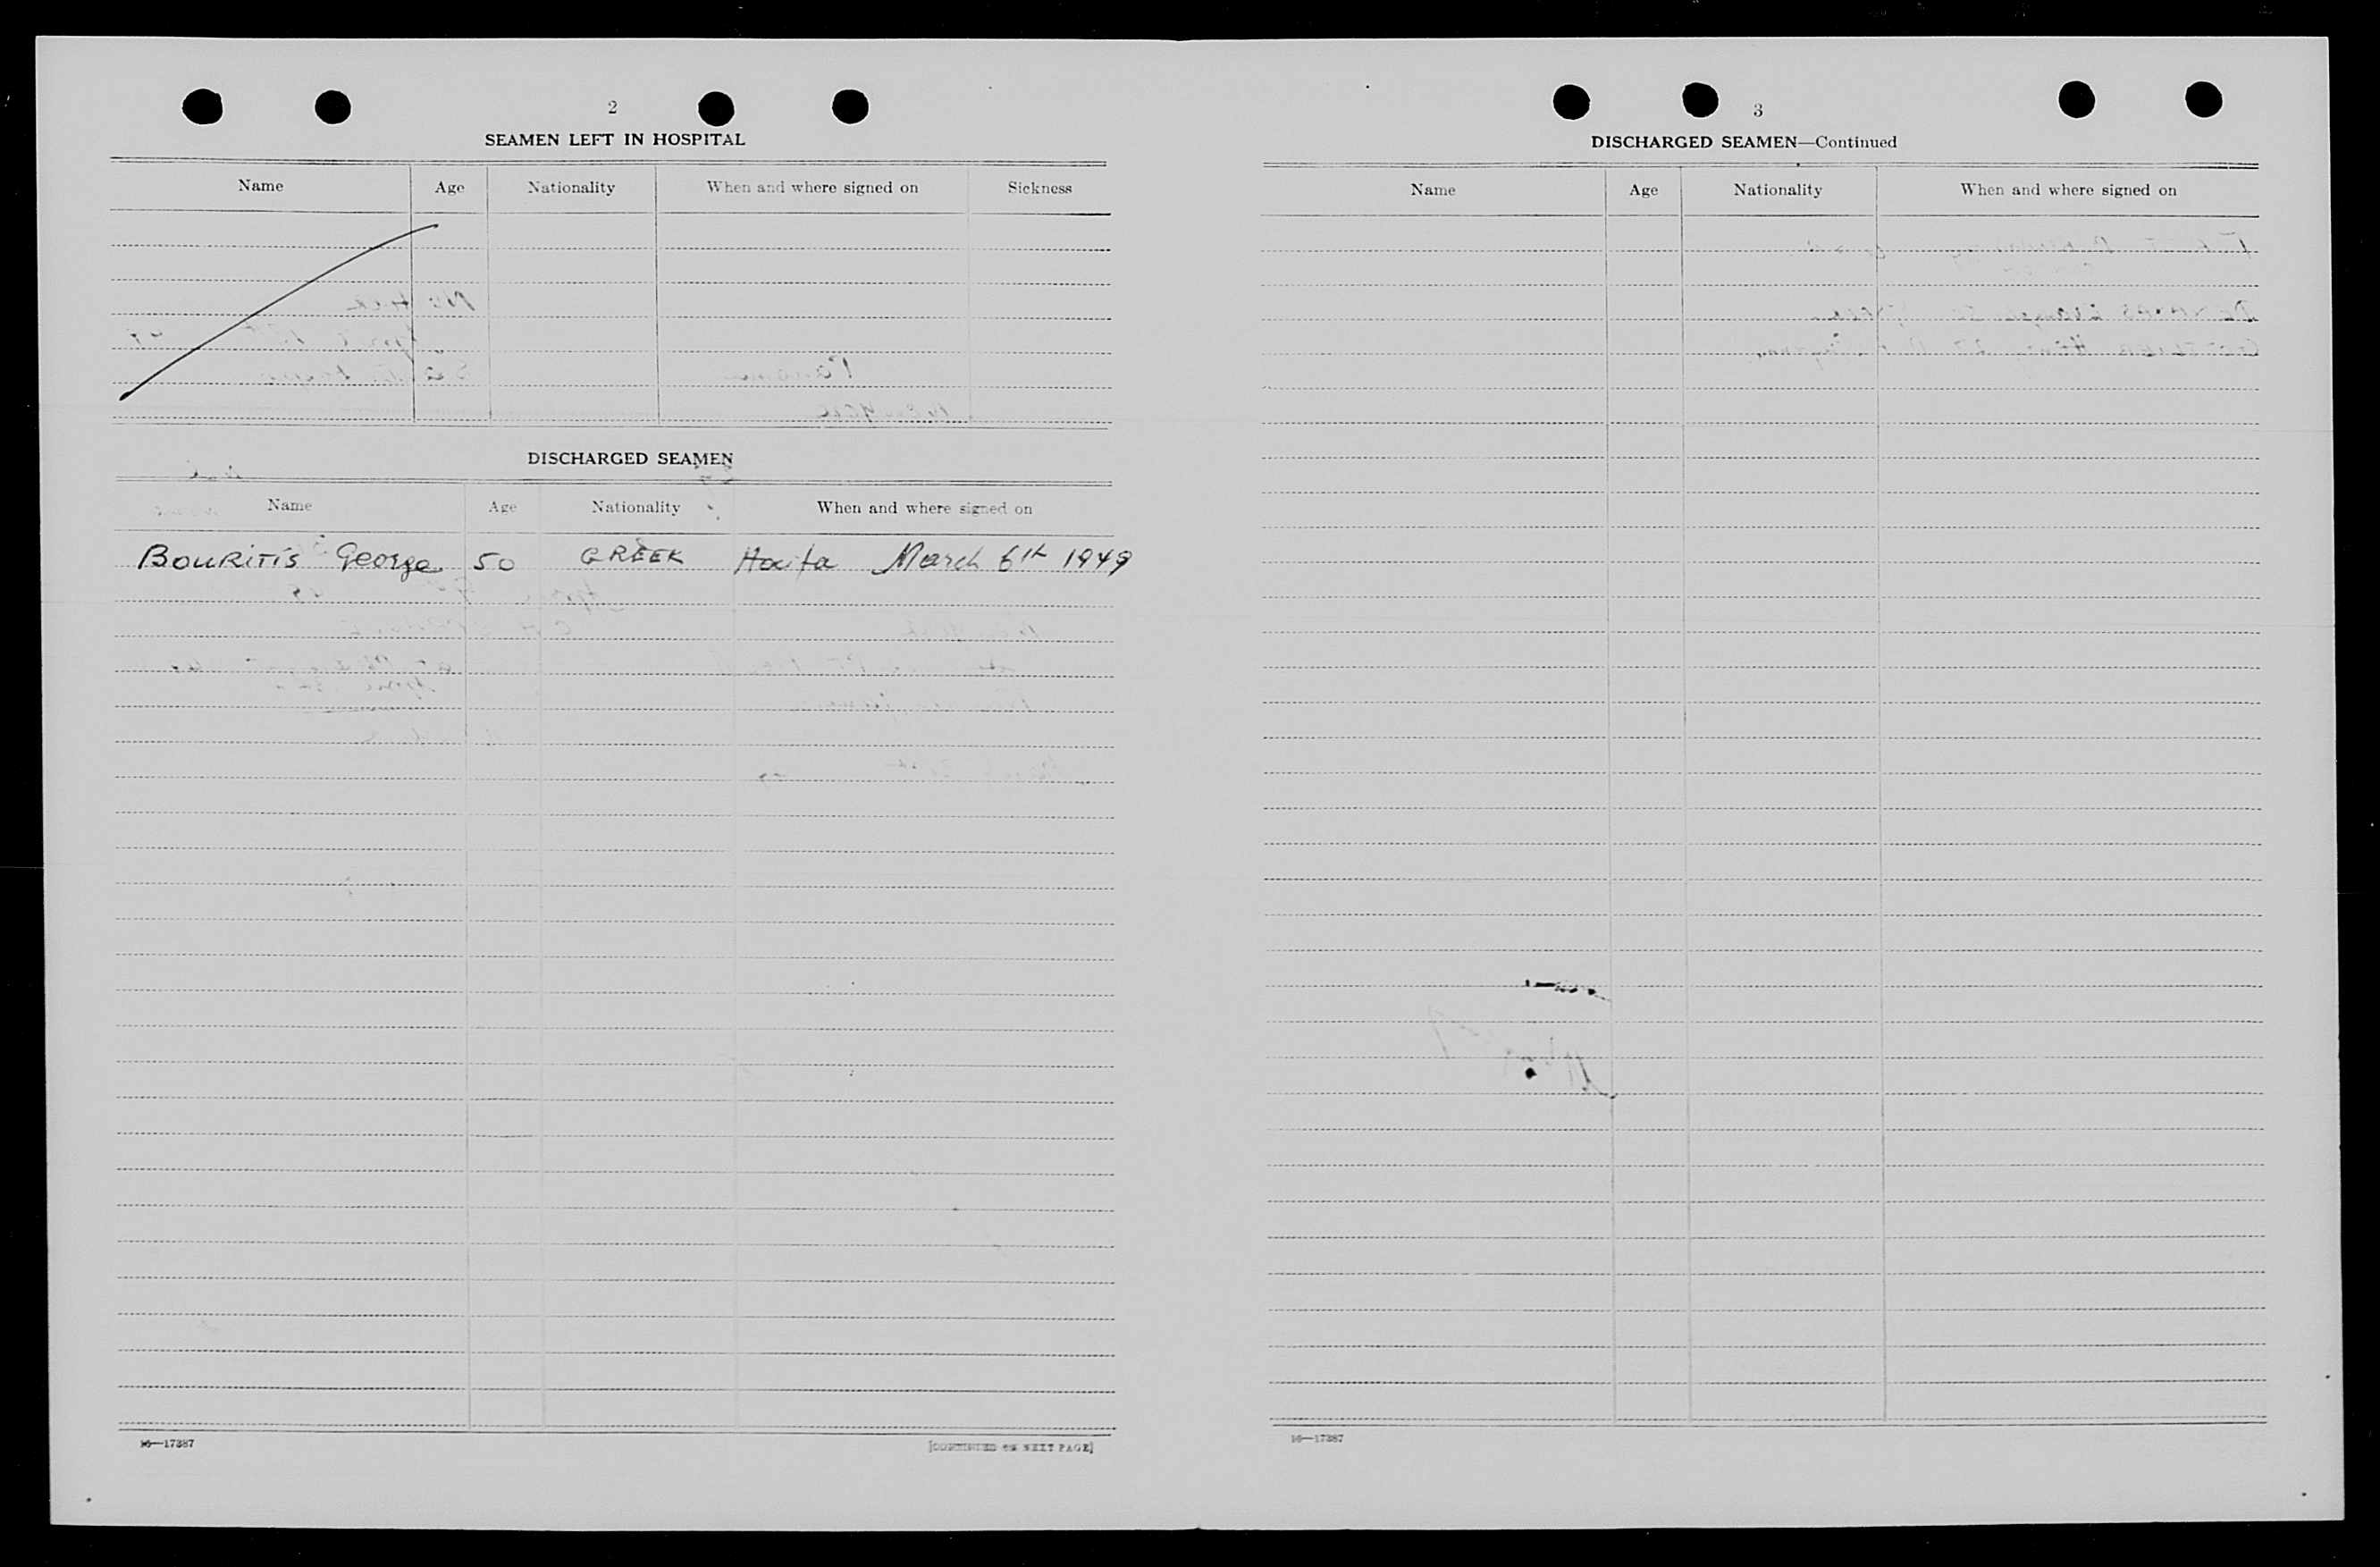 2
SEAMEN LEFT IN HOSPITAL
Name Age Nationality When and where signed on Sickness
DISCHARGED SEAMEN
Name Age Nationality When and where signed on
BOURITIS George 50 GREEK Haifa March 6th 1949
16—17387 [CONTINUED ON NEXT PAGE]
3
DISCHARGED SEAMEN—Continued
Name Age Nationality When and where signed on
16—17387